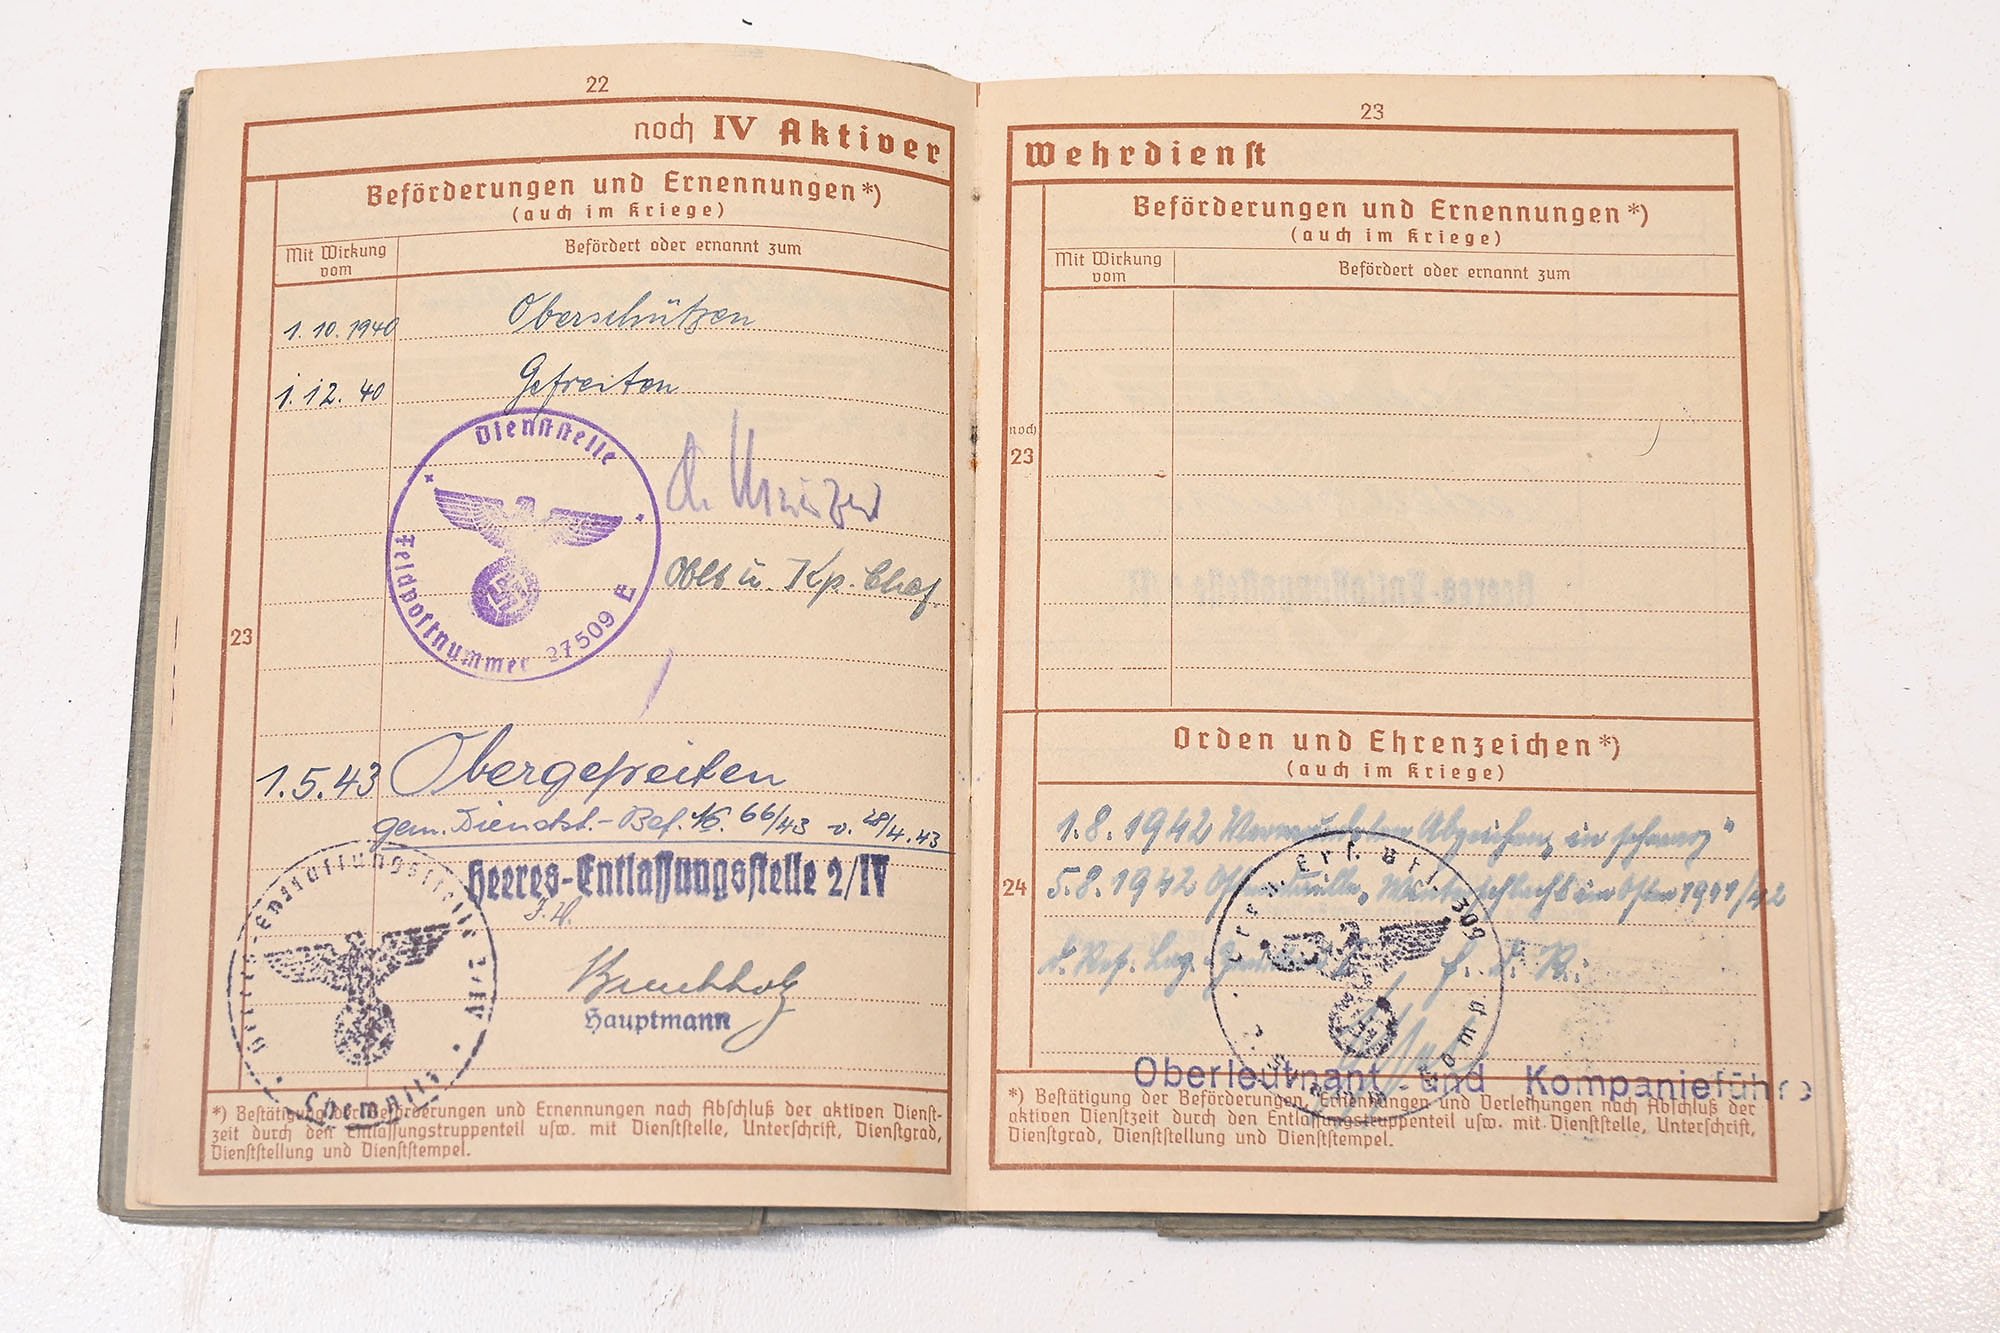 22
noch IV Aktiver
Beförderungen und Ernennungen*)
(auch im Kriege)
Mit Wirkung
vom
Befördert oder ernannt zum
1.10.1940 Oberschützen
1.12.40 Gefreiten
Dienststelle
Feldpostnummer 27509 E
Oblt u. Kp. Chef
23
1.5.43 Obergefreiten
gem. Dienstst.-Bef. 66/43 v. 28/4.43
Heeres-Entlassungsstelle 2/IV
J.V.
Buchholz
Hauptmann
Heeres-Entlassungsstelle 2/IV
Chemnitz
*) Bestätigung der Beförderungen und Ernennungen nach Abschluß der aktiven Dienst-
zeit durch den Entlassungstruppenteil usw. mit Dienststelle, Unterschrift, Dienstgrad,
Dienststellung und Dienststempel.
23
Wehrdienst
Beförderungen und Ernennungen*)
(auch im Kriege)
Mit Wirkung
vom
Befördert oder ernannt zum
noch
23
Orden und Ehrenzeichen*)
(auch im Kriege)
1.8.1942 Verwundeten Abzeichen in schwarz"
24
5.8.1942 Ostmedaille, Winterschlacht im Osten 1941/42
f. d. R.
Oberleutnant und Kompanieführe
*) Bestätigung der Beförderungen, Ernennungen und Verleihungen nach Abschluß der
aktiven Dienstzeit durch den Entlassungstruppenteil usw. mit Dienststelle, Unterschrift,
Dienstgrad, Dienststellung und Dienststempel.